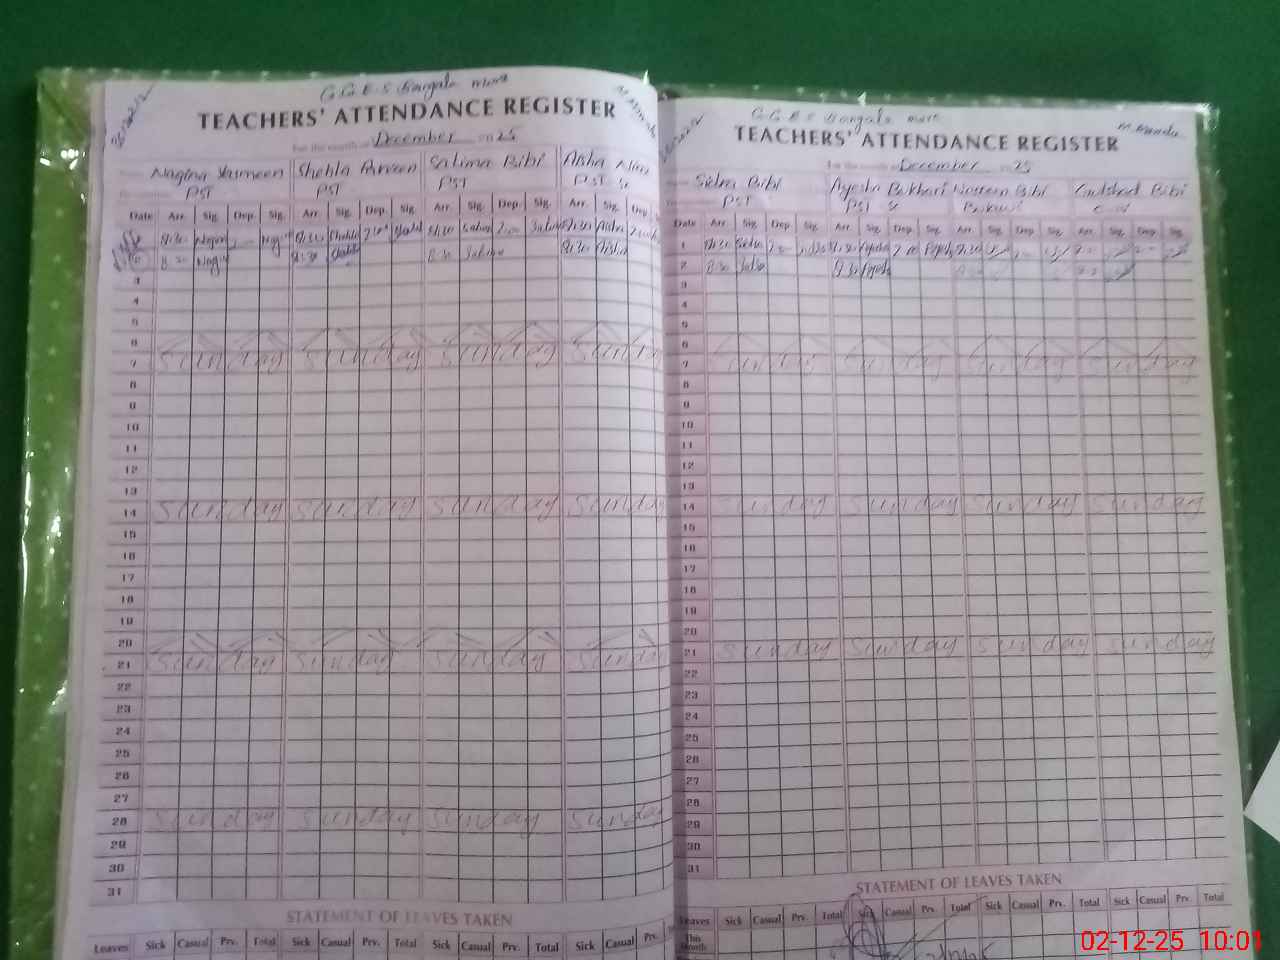 G.G.E.S
TEACHERS' ATTENDANCE REGISTER
For the month of December 2025
Nagina Yasmeen Shehla Parveen Salima Bibi Aisha
PST PST PST PST
Date Arr. Sig. Dep. Sig. Arr. Sig. Dep. Sig. Arr. Sig. Dep. Sig. Arr. Sig. Dep.
8:30 8:30 Shehla 8:30 Salima 2:00 Salima 8:30 Aisha
8:30 8:30 8:30 Salima 8:30 Aisha
3
4
5
6
7 Sunday Sunday Sunday Sunday
8
9
10
11
12
13
14 Sunday Sunday Sunday Sunday
15
16
17
18
19
20
21 Sunday Sunday Sunday Sunday
22
23
24
25
26
27
28 Sunday Sunday Sunday Sunday
29
30
31
STATEMENT OF LEAVES TAKEN
Leaves Sick Casual Prv. Total Sick Casual Prv. Total Sick Casual Prv. Total Sick Casual Prv.
G.G.E.S
TEACHERS' ATTENDANCE REGISTER
For the month of December 2025
Sidra Bibi Ayesha Bukhari Bibi Bibi
PST PST
Date Arr. Sig. Dep. Sig. Arr. Sig. Dep. Sig. Arr. Sig. Dep. Sig. Arr. Sig. Dep. Sig.
1 8:30 Sidra 8:30 Ayesha 2:00 Ayesha 8:30
2 8:30 8:30 Ayesha
3
4
5
6
7 Sunday Sunday Sunday Sunday
8
9
10
11
12
13
14 Sunday Sunday Sunday Sunday
15
16
17
18
19
20
21 Sunday Sunday Sunday Sunday
22
23
24
25
26
27
28
29
30
31
STATEMENT OF LEAVES TAKEN
Leaves Sick Casual Prv. Total Sick Casual Prv. Total Sick Casual Prv. Total Sick Casual Prv. Total
This Month
02-12-25 10:01